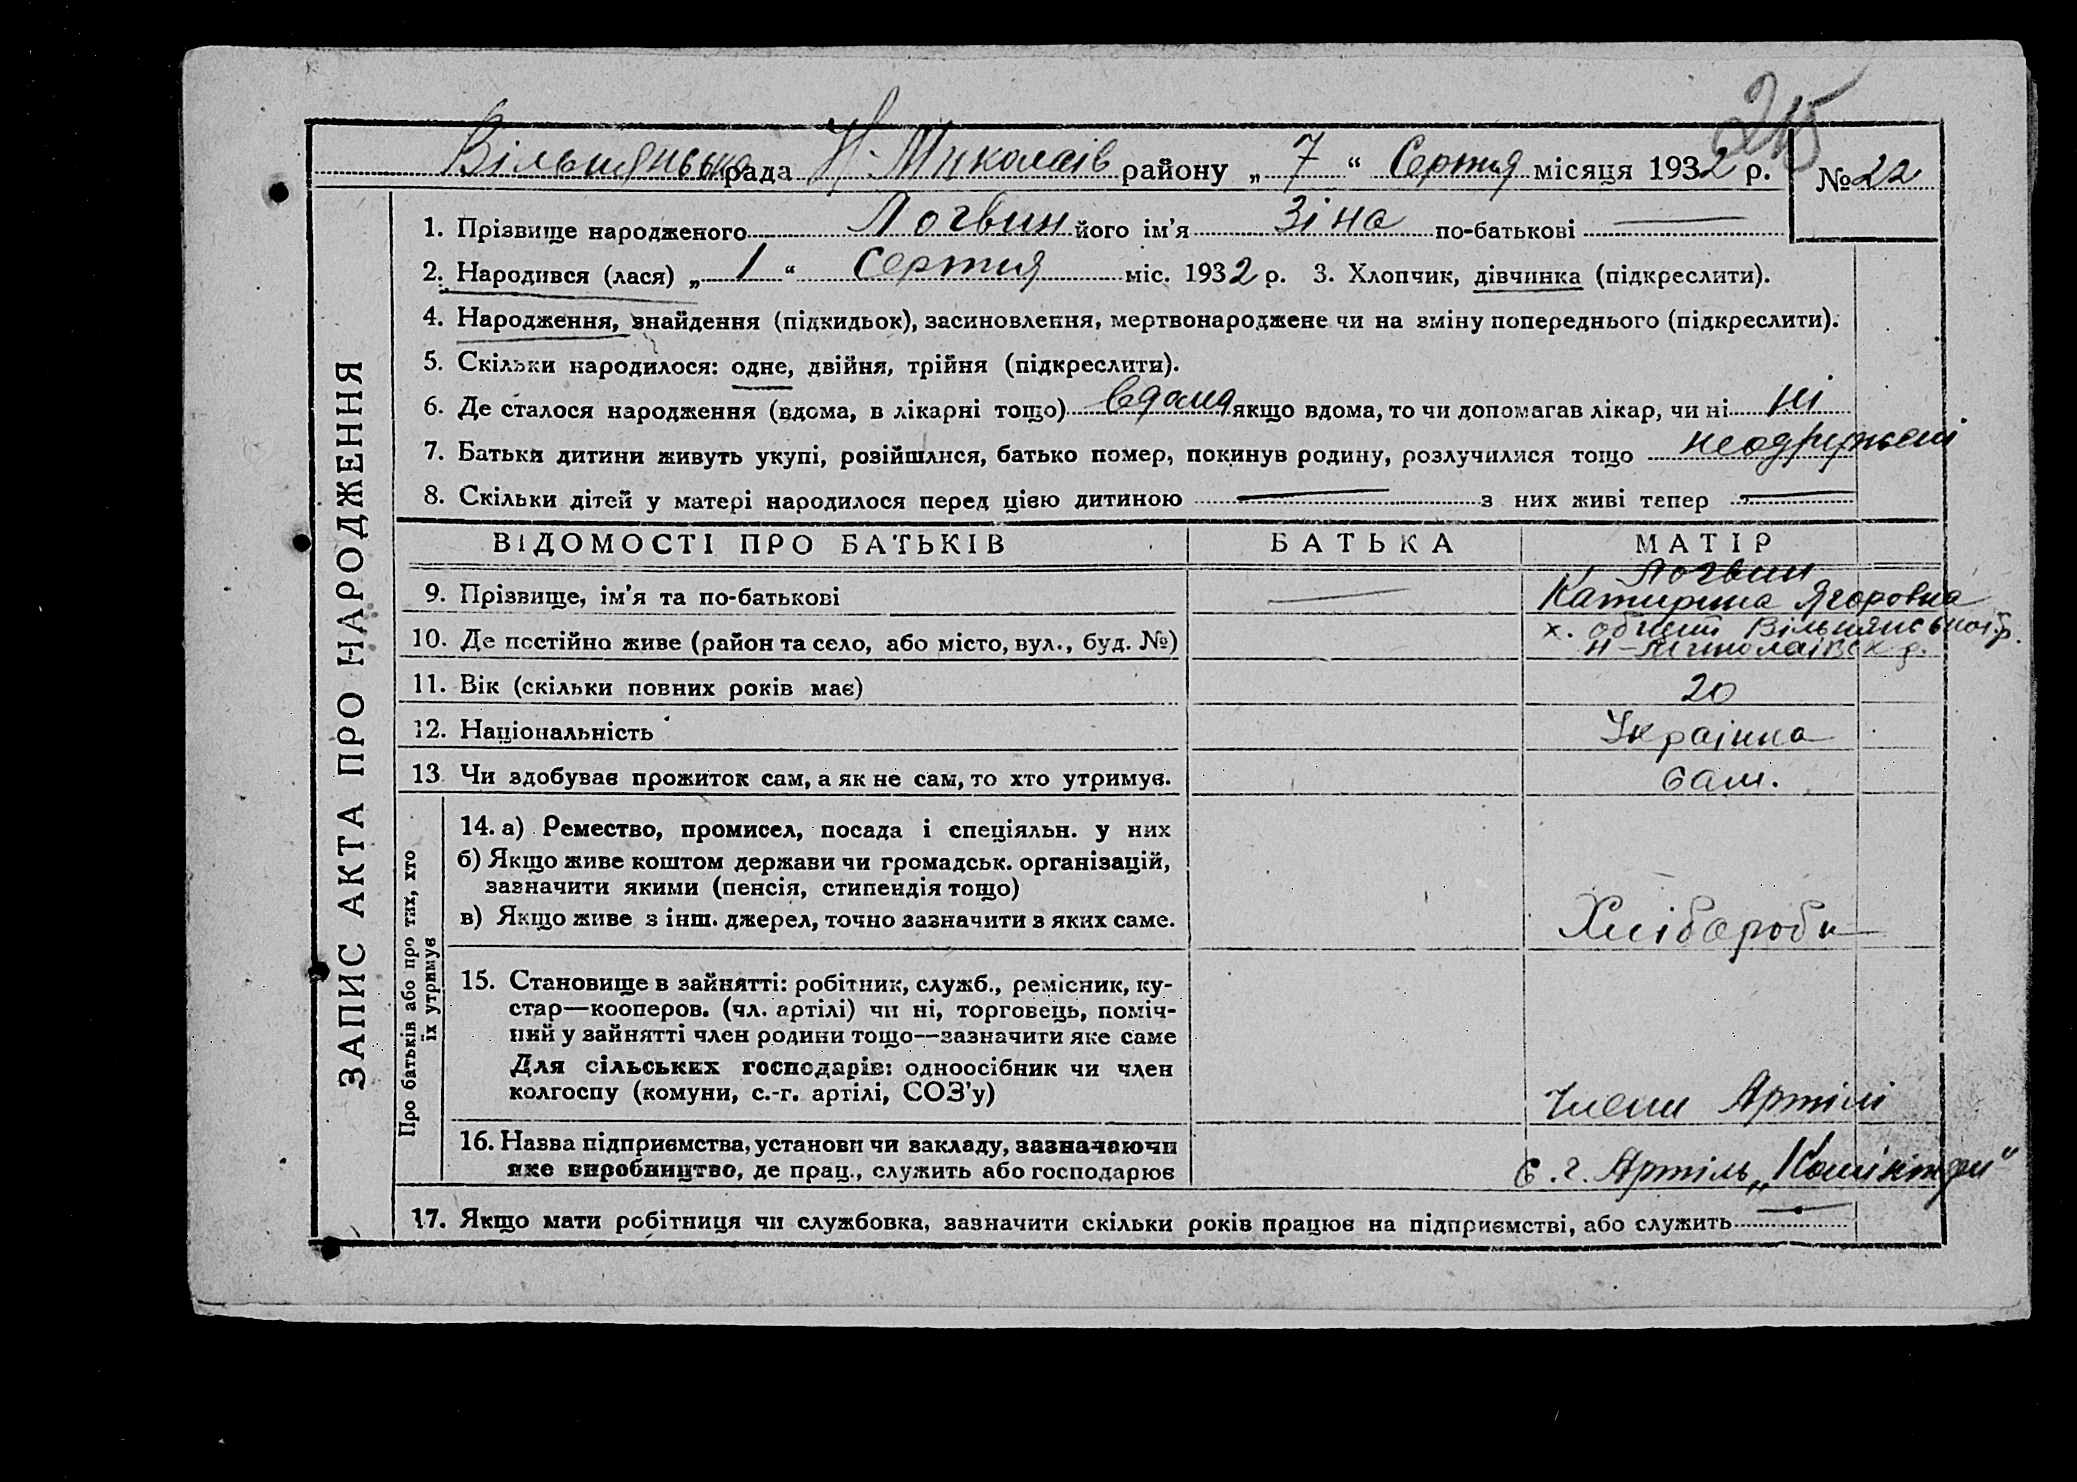 215
Вільнянська рада Н-Миколаїв району „ 7 “ Серпня місяця 1932 р. № 22
1. Прізвище народженого Логвин його ім'я Зіна по-батькові —
2. Народився (лася) „ 1 “ Серпня міс. 1932 р. 3. Хлопчик, дівчинка (підкреслити).
4. Народження, знайдення (підкидьок), засиновлення, мертвонароджене чи на зміну попереднього (підкреслити).
5. Скільки народилося: одне, двійня, трійня (підкреслити).
6. Де сталося народження (вдома, в лікарні тощо) вдома якщо вдома, то чи допомагав лікар, чи ні ні
7. Батьки дитини живуть укупі, розійшлися, батько помер, покинув родину, розлучилися тощо неодружені
8. Скільки дітей у матері народилося перед цією дитиною — з них живі тепер —
ЗАПИС АКТА ПРО НАРОДЖЕННЯ
ВІДОМОСТІ ПРО БАТЬКІВ БАТЬКА МАТІР
9. Прізвище, ім'я та по-батькові — Логвин
Катирина Ягоровна
10. Де постійно живе (район та село, або місто, вул., буд. №) х. Вільнянської р.
Н-Миколаївск р.
11. Вік (скільки повних років має) 20
12. Національність Українка
13 Чи здобував прожиток сам, а як не сам, то хто утримує. сам.
Про батьків або про тих, хто
їх утримує
14. а) Ремество, промисел, посада і спеціяльн. у них
б) Якщо живе коштом держави чи громадськ. організацій,
зазначити якими (пенсія, стипендія тощо)
в) Якщо живе з інш. джерел, точно зазначити з яких саме. Хлібороби
15. Становище в зайнятті: робітник, служб., ремісник, ку-
стар—кооперов. (чл. артілі) чи ні, торговець, поміч-
ний у зайнятті член родини тощо—зазначити яке саме
Для сільських господарів: одноосібник чи член
колгоспу (комуни, с.-г. артілі, СОЗ'у) Члени Артілі
16. Назва підприємства, установи чи закладу, зазначаючи
яке виробництво, де прац., служить або господарює С. г. Артіль „Комінтерн“
17. Якщо мати робітниця чи службовка, зазначити скільки років працює на підприємстві, або служить —